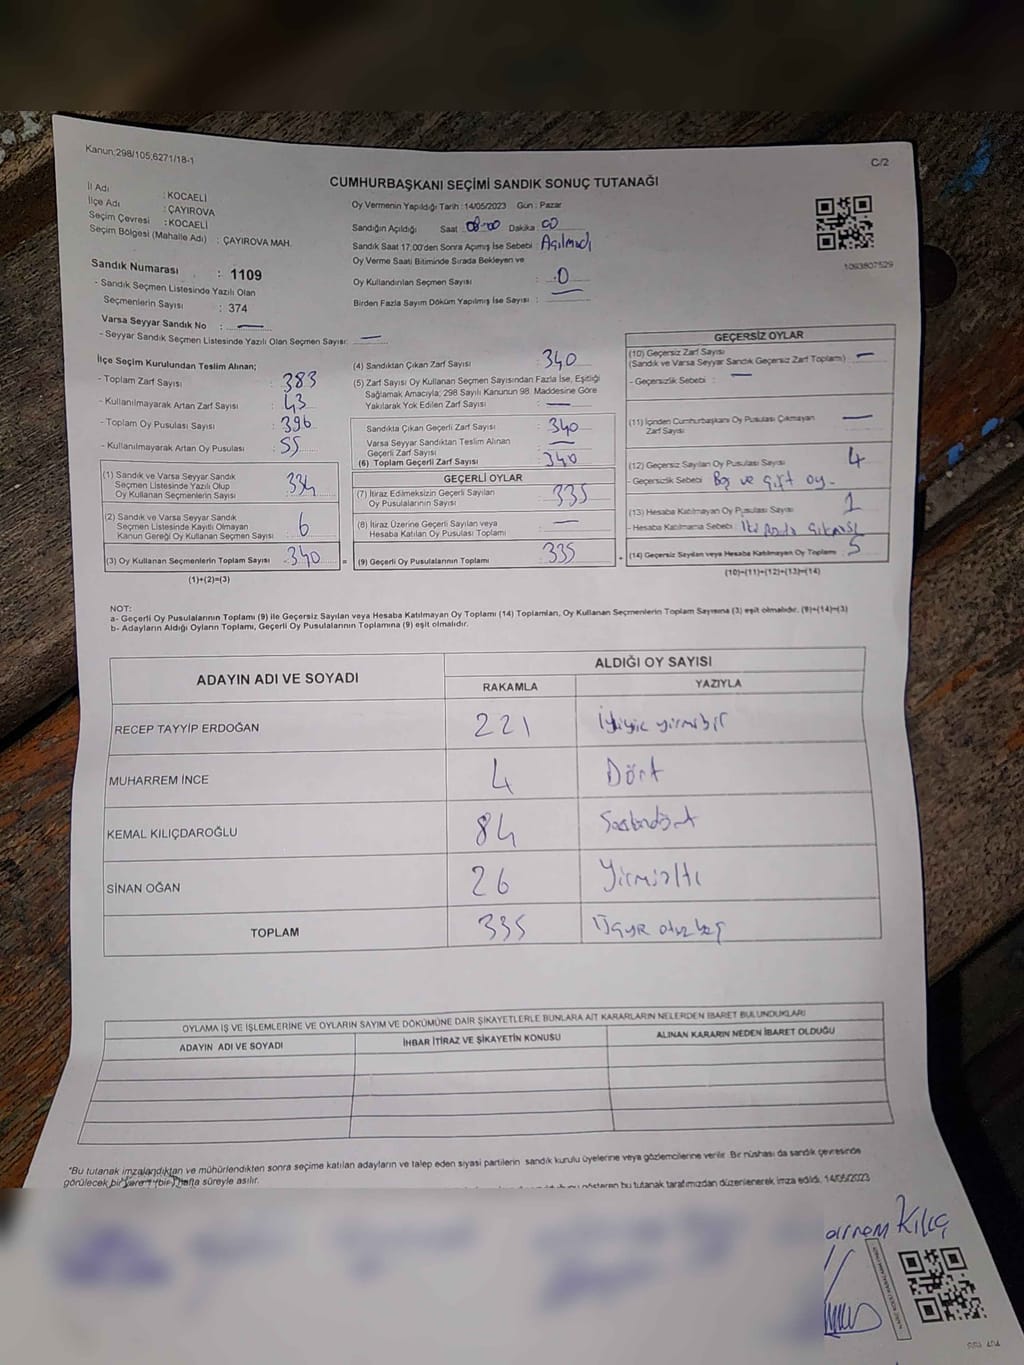 Kanun:298/105,6271/18-1
C/2
CUMHURBAŞKANI SEÇİMİ SANDIK SONUÇ TUTANAĞI
İl Adı : KOCAELİ
İlçe Adı : ÇAYIROVA
Seçim Çevresi : KOCAELİ
Seçim Bölgesi (Mahalle Adı) : ÇAYIROVA MAH.
Oy Vermenin Yapıldığı Tarih :14/05/2023 Gün : Pazar
Sandığın Açıldığı Saat : 08-00 Dakika : 00
Sandık Saat 17:00'den Sonra Açımış İse Sebebi : Açılmadı
Oy Verme Saati Bitiminde Sırada Bekleyen ve
Oy Kullandırılan Seçmen Sayısı : 0
Birden Fazla Sayım Döküm Yapılmış İse Sayısı :
1093807529
Sandık Numarası : 1109
- Sandık Seçmen Listesinde Yazılı Olan
Seçmenlerin Sayısı : 374
Varsa Seyyar Sandık No : —
- Seyyar Sandık Seçmen Listesinde Yazılı Olan Seçmen Sayısı: —
İlçe Seçim Kurulundan Teslim Alınan;
- Toplam Zarf Sayısı : 383
- Kullanılmayarak Artan Zarf Sayısı : 43
- Toplam Oy Pusulası Sayısı : 396
- Kullanılmayarak Artan Oy Pusulası : 55
(1) Sandık ve Varsa Seyyar Sandık
Seçmen Listesinde Yazılı Olup
Oy Kullanan Seçmenlerin Sayısı : 334
(2) Sandık ve Varsa Seyyar Sandık
Seçmen Listesinde Kayıtlı Olmayan
Kanun Gereği Oy Kullanan Seçmen Sayısı : 6
(3) Oy Kullanan Seçmenlerin Toplam Sayısı : 340 =
(1)+(2)=(3)
(4) Sandıktan Çıkan Zarf Sayısı : 340
(5) Zarf Sayısı Oy Kullanan Seçmen Sayısından Fazla İse, Eşitliği
Sağlamak Amacıyla; 298 Sayılı Kanunun 98. Maddesine Göre
Yakılarak Yok Edilen Zarf Sayısı : —
Sandıkta Çıkan Geçerli Zarf Sayısı : 340
Varsa Seyyar Sandıktan Teslim Alınan
Geçerli Zarf Sayısı : —
(6) Toplam Geçerli Zarf Sayısı : 340
GEÇERLİ OYLAR
(7) İtiraz Edilmeksizin Geçerli Sayılan
Oy Pusulalarının Sayısı : 335
(8) İtiraz Üzerine Geçerli Sayılan veya
Hesaba Katılan Oy Pusulası Toplamı : —
(9) Geçerli Oy Pusulalarının Toplamı : 335 +
GEÇERSİZ OYLAR
(10) Geçersiz Zarf Sayısı
(Sandık ve Varsa Seyyar Sandık Geçersiz Zarf Toplamı) : —
- Geçersizlik Sebebi : —
(11) İçinden Cumhurbaşkanı Oy Pusulası Çıkmayan
Zarf Sayısı : —
(12) Geçersiz Sayılan Oy Pusulası Sayısı : 4
- Geçersizlik Sebebi : Boş ve çift oy-
(13) Hesaba Katılmayan Oy Pusulası Sayısı : 1
- Hesaba Katılmama Sebebi :
(14) Geçersiz Sayılan veya Hesaba Katılmayan Oy Toplamı : 5
(10)+(11)+(12)+(13)=(14)
NOT:
a- Geçerli Oy Pusulalarının Toplamı (9) ile Geçersiz Sayılan veya Hesaba Katılmayan Oy Toplamı (14) Toplamları, Oy Kullanan Seçmenlerin Toplam Sayısına (3) eşit olmalıdır. (9)+(14)=(3)
b- Adayların Aldığı Oyların Toplamı, Geçerli Oy Pusulalarının Toplamına (9) eşit olmalıdır.
ADAYIN ADI VE SOYADI
ALDIĞI OY SAYISI
RAKAMLA YAZIYLA
RECEP TAYYİP ERDOĞAN 221 ikiyüz yirmibir
MUHARREM İNCE 4 Dört
KEMAL KILIÇDAROĞLU 84 Seksendört
SİNAN OĞAN 26 Yirmialtı
TOPLAM 335 Üçyüz otuz beş
OYLAMA İŞ VE İŞLEMLERİNE VE OYLARIN SAYIM VE DÖKÜMÜNE DAİR ŞİKAYETLERLE BUNLARA AİT KARARLARIN NELERDEN İBARET BULUNDUKLARI
ADAYIN ADI VE SOYADI İHBAR İTİRAZ VE ŞİKAYETİN KONUSU ALINAN KARARIN NEDEN İBARET OLDUĞU
*Bu tutanak imzalandıktan ve mühürlendikten sonra seçime katılan adayların ve talep eden siyasi partilerin sandık kurulu üyelerine veya gözlemcilerine verilir. Bir nüshası da sandık çevresinde
görülecek bir yere 1 (bir) hafta süreyle asılır.
gösteren bu tutanak tarafımızdan düzenlenerek imza edildi. 14/05/2023
Kılıç